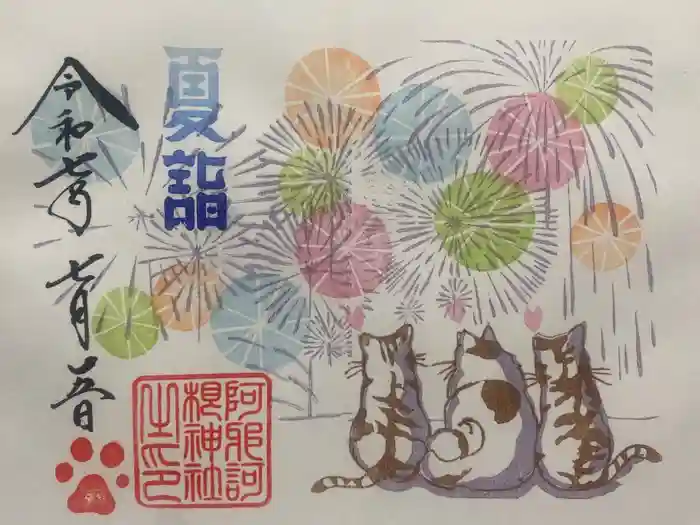 夏詣
令和七年 七月
阿邪訶
根神社
之印